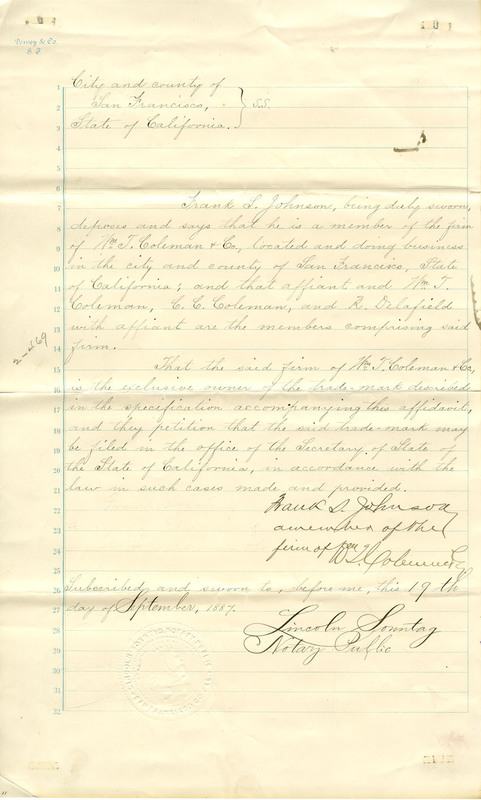 Dewey & Co.
S. F.
City and county of
San Francisco,
State of California.
} S.S.
Frank S. Johnson, being duly sworn,
deposes and says that he is a member of the firm
of Wm T. Coleman & Co., located and doing business
in the city and county of San Francisco, State
of California; and that affiant and Wm T.
Coleman, C. C. Coleman, and R. Delafield
with affiant are the members comprising said
firm.
That the said firm of Wm T. Coleman & Co,
is the exclusive owner of the trade-mark described
in the specification accompanying this affidavit,
and they petition that the said trade-mark may
be filed in the office of the Secretary of State of
the State of California, in accordance with the
law in such cases made and provided.
Frank S. Johnson
a member of the
firm of Wm T Coleman & Co
Subscribed and sworn to, before me, this 19th
day of September, 1887.
Lincoln Sonntag
Notary Public
1
2
3
4
5
6
7
8
9
10
11
12
13
14
15
16
17
18
19
20
21
22
23
24
25
26
27
28
29
30
31
32